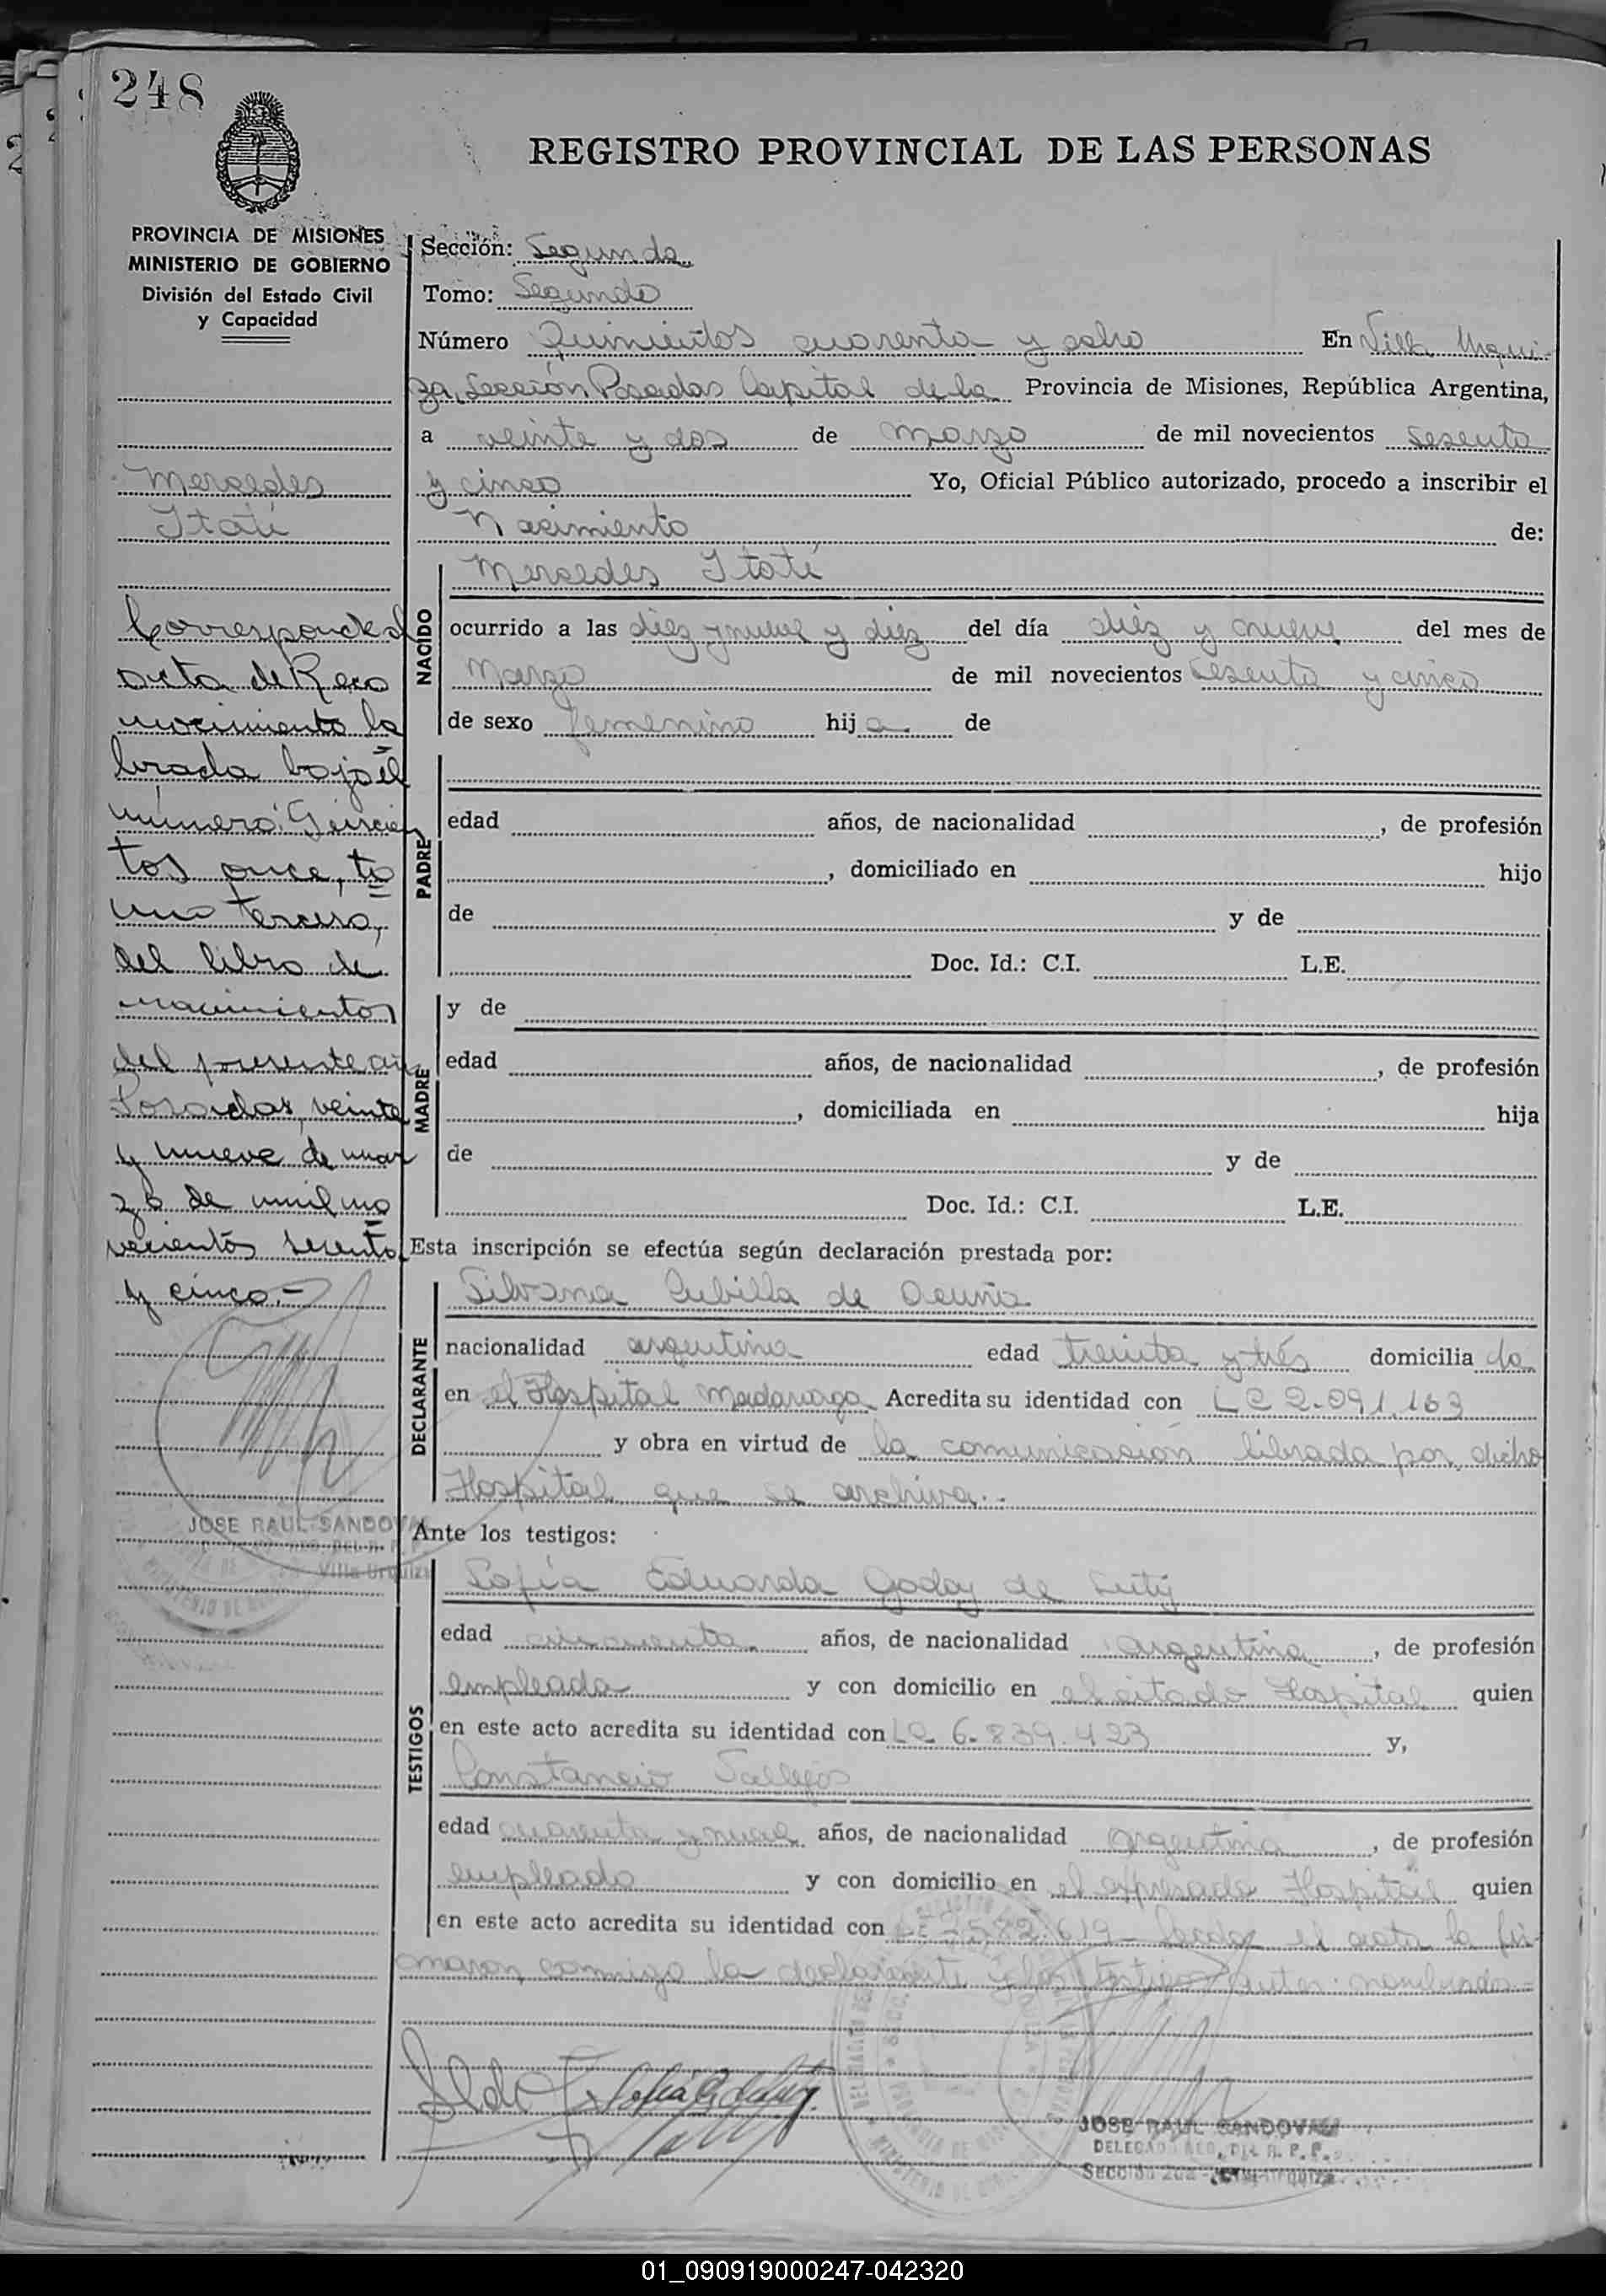 248
REGISTRO PROVINCIAL DE LAS PERSONAS
PROVINCIA DE MISIONES
MINISTERIO DE GOBIERNO
División del Estado Civil
y Capacidad
Mercedes
Itatí
Corresponde al
acta de Reco
nocimiento la
brada bajo el
número: Seiscien
tos once, to
mo tercero,
del libro de
nacimientos
del presente año
Posadas, veinte
y nueve de mar
zo de mil no
vecientos sesenta
y cinco.-
JOSE RAUL SANDOVAL
Villa Urquiza
Sección: Segunda
Tomo: Segundo
Número Quinientos cuarenta y ocho En Villa Urqui-
za, Sección Posadas Capital de la Provincia de Misiones, República Argentina,
a veinte y dos de Marzo de mil novecientos sesenta
y cinco Yo, Oficial Público autorizado, procedo a inscribir el
Nacimiento de:
NACIDO
Mercedes Itatí
ocurrido a las diez y nueve y diez del día diez y nueve del mes de
Marzo de mil novecientos sesenta y cinco
de sexo femenino hija de
PADRE
edad años, de nacionalidad , de profesión
, domiciliado en hijo
de y de
Doc. Id.: C.I. L.E.
MADRE
y de
edad años, de nacionalidad , de profesión
, domiciliada en hija
de y de
Doc. Id.: C.I. L.E.
Esta inscripción se efectúa según declaración prestada por:
DECLARANTE
Silvana Cubilla de Acuña
nacionalidad argentina edad treinta y trés domicilia da
en el Hospital Madariaga Acredita su identidad con LC 2.091.163
y obra en virtud de la comunicación librada por dicho
Hospital que se archiva..
Ante los testigos:
TESTIGOS
Sofía Eduarda Godoy de
edad cincuenta años, de nacionalidad argentina, de profesión
empleada y con domicilio en el citado Hospital quien
en este acto acredita su identidad con LC 6.839.423 y,
Constancio Vallejos
edad cuarenta y nueve años, de nacionalidad argentina, de profesión
empleado y con domicilio en el expresado Hospital quien
en este acto acredita su identidad con el acta la fir-
maron conmigo la declarante y los testigos antes nombrados
JOSE RAUL SANDOVAL
DELEGADO DEL R. P. P.
Sección 2da
01_090919000247-042320